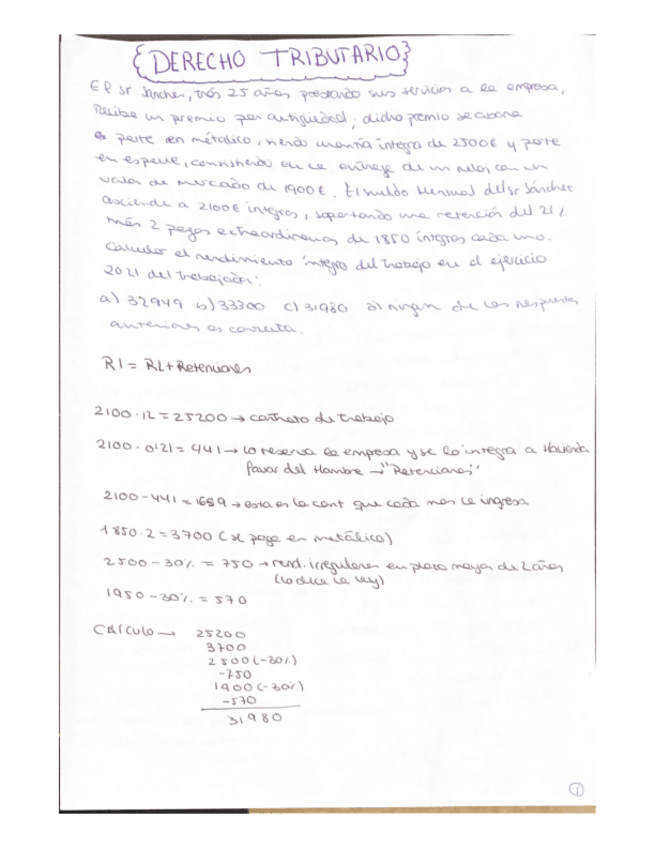 {DERECHO TRIBUTARIO}
El Sr Sánchez, tras 25 años prestando sus servicios a la empresa,
Recibe un premio por antigüedad; dicho premio se abona
parte en metálico, siendo cuantía íntegra de 2500€ y parte
en especie, consistiendo en la entrega de un reloj con un
valor de mercado de 1900€. El sueldo Mensual del sr Sánchez
asciende a 2100€ íntegros, soportando una retención del 21%.
más 2 pagas extraordinarias de 1850 íntegros cada una.
Calcular el rendimiento íntegro del trabajo en el ejercicio
2021 del trabajador:
a) 32949 b) 33300 c) 31980 d) ningun de las respuestas
anteriores es correcta.
RI = RL + Retenciones
2100 · 12 = 25200 → contrato de trabajo
2100 · 0'21 = 441 → lo reserva la empresa y se lo integra a Hacienda
favor del Hombre → "Retenciones"
2100 - 441 = 1659 → esta es la cant que cada mes le ingresa
1850 · 2 = 3700 (se paga en metálico)
2500 - 30% = 750 → rend. irregulares en plazo mayor de 2 años
(lo dice la ley)
1950 - 30% = 570
CÁLCULO → 25200
3700
2500 (-30%)
-750
1900 (-30%)
-570
31980
1